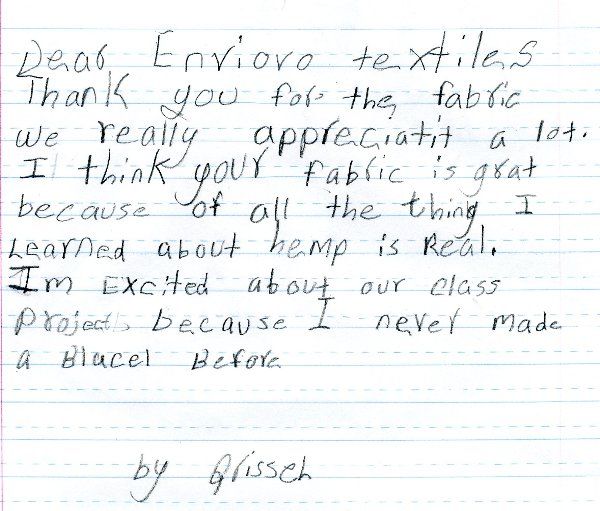 Dear Enviovo textiles
Thank you for the fabric
we really appreciatit a lot.
I think your fabric is grat
because of all the thing I
Learned about hemp is Real.
Im Excited about our class
Project because I never made
a Blacel Before
by Qrissel